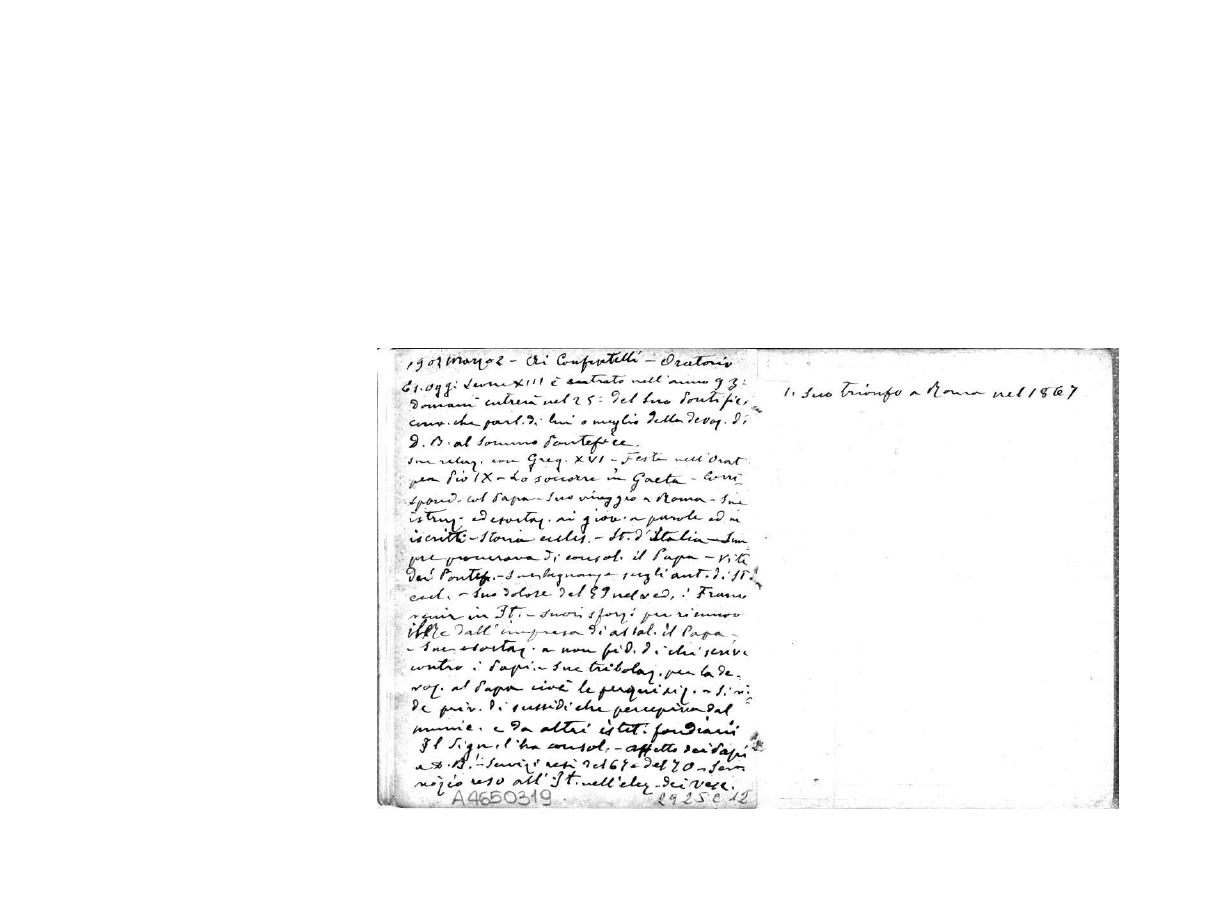 1902 Marzo 2 - Ai Confratelli - Oratorio
Es. Oggi Leone XIII è entrato nell'anno 93:
domani entrerà nel 25° del suo Pontific.
conv. che parl. di lui o meglio della devoz. di
D. B. al Sommo Pontefice.
Sue relaz. con Greg. XVI - Feste nell'Orat
per Pio IX - Lo soccorre in Gaeta - Corri
spond. col Papa - Suo viaggio a Roma - Sue
istruz. ed esortaz. ai giov. a parole ed in
iscritti - Storia eccles. - St. d'Italia - Sem
pre procurava di consol. il Papa - Vite
dei Pontef. - Sue lagnanze sugli aut. di St.
eccl. - Suo dolore del 59 nel ved. i Franc.
venir in It. - Suoi sforzi per rimuov
dall'impresa di assal. il Papa -
- Sue esortaz. a non fid. di chi scrive
contro i Papi - Sue tribolaz. per la de-
voz. al Papa cioè le perquisiz. - Si vi-
de priv. di sussidi che percepiva dal
munic. e da altri istit.
Il Sign. l'ha consol. - Affetto dei Papi
a D. B. - Servizi resi del 67 e del 70 - Serv
reso all'It. nell'elez. dei Vesc.
A4650319 2925C12
1. Suo trionfo a Roma nel 1867